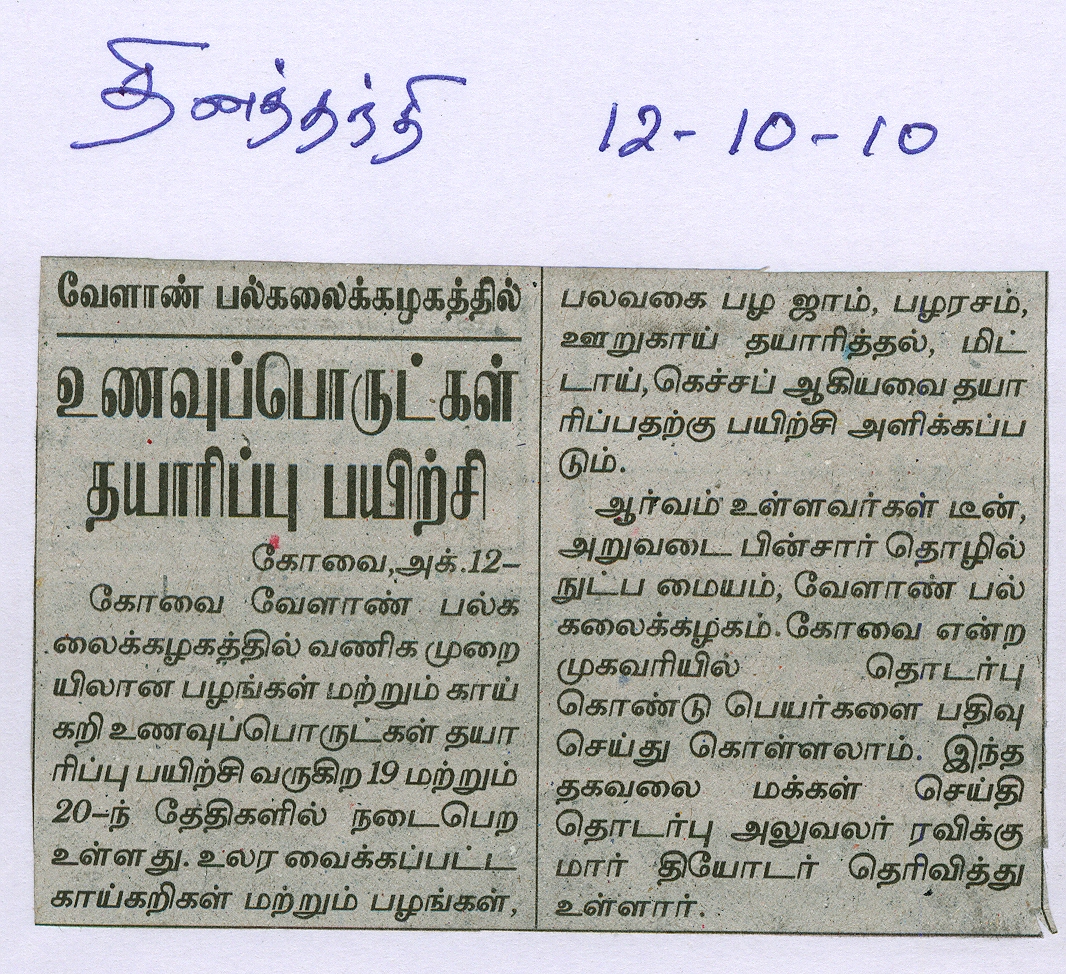 தினத்தந்தி 12-10-10
வேளாண் பல்கலைக்கழகத்தில்
உணவுப்பொருட்கள்
தயாரிப்பு பயிற்சி
கோவை,அக்.12–
கோவை வேளாண் பல்க
லைக்கழகத்தில் வணிக முறை
யிலான பழங்கள் மற்றும் காய்
கறி உணவுப்பொருட்கள் தயா
ரிப்பு பயிற்சி வருகிற 19 மற்றும்
20–ந் தேதிகளில் நடைபெற
உள்ளது. உலர வைக்கப்பட்ட
காய்கறிகள் மற்றும் பழங்கள்,
பலவகை பழ ஜாம், பழரசம்,
ஊறுகாய் தயாரித்தல், மிட்
டாய், கெச்சப் ஆகியவை தயா
ரிப்பதற்கு பயிற்சி அளிக்கப்ப
டும்.
ஆர்வம் உள்ளவர்கள் டீன்,
அறுவடை பின்சார் தொழில்
நுட்ப மையம், வேளாண் பல்
கலைக்கழகம். கோவை என்ற
முகவரியில் தொடர்பு
கொண்டு பெயர்களை பதிவு
செய்து கொள்ளலாம். இந்த
தகவலை மக்கள் செய்தி
தொடர்பு அலுவலர் ரவிக்கு
மார் தியோடர் தெரிவித்து
உள்ளார்.